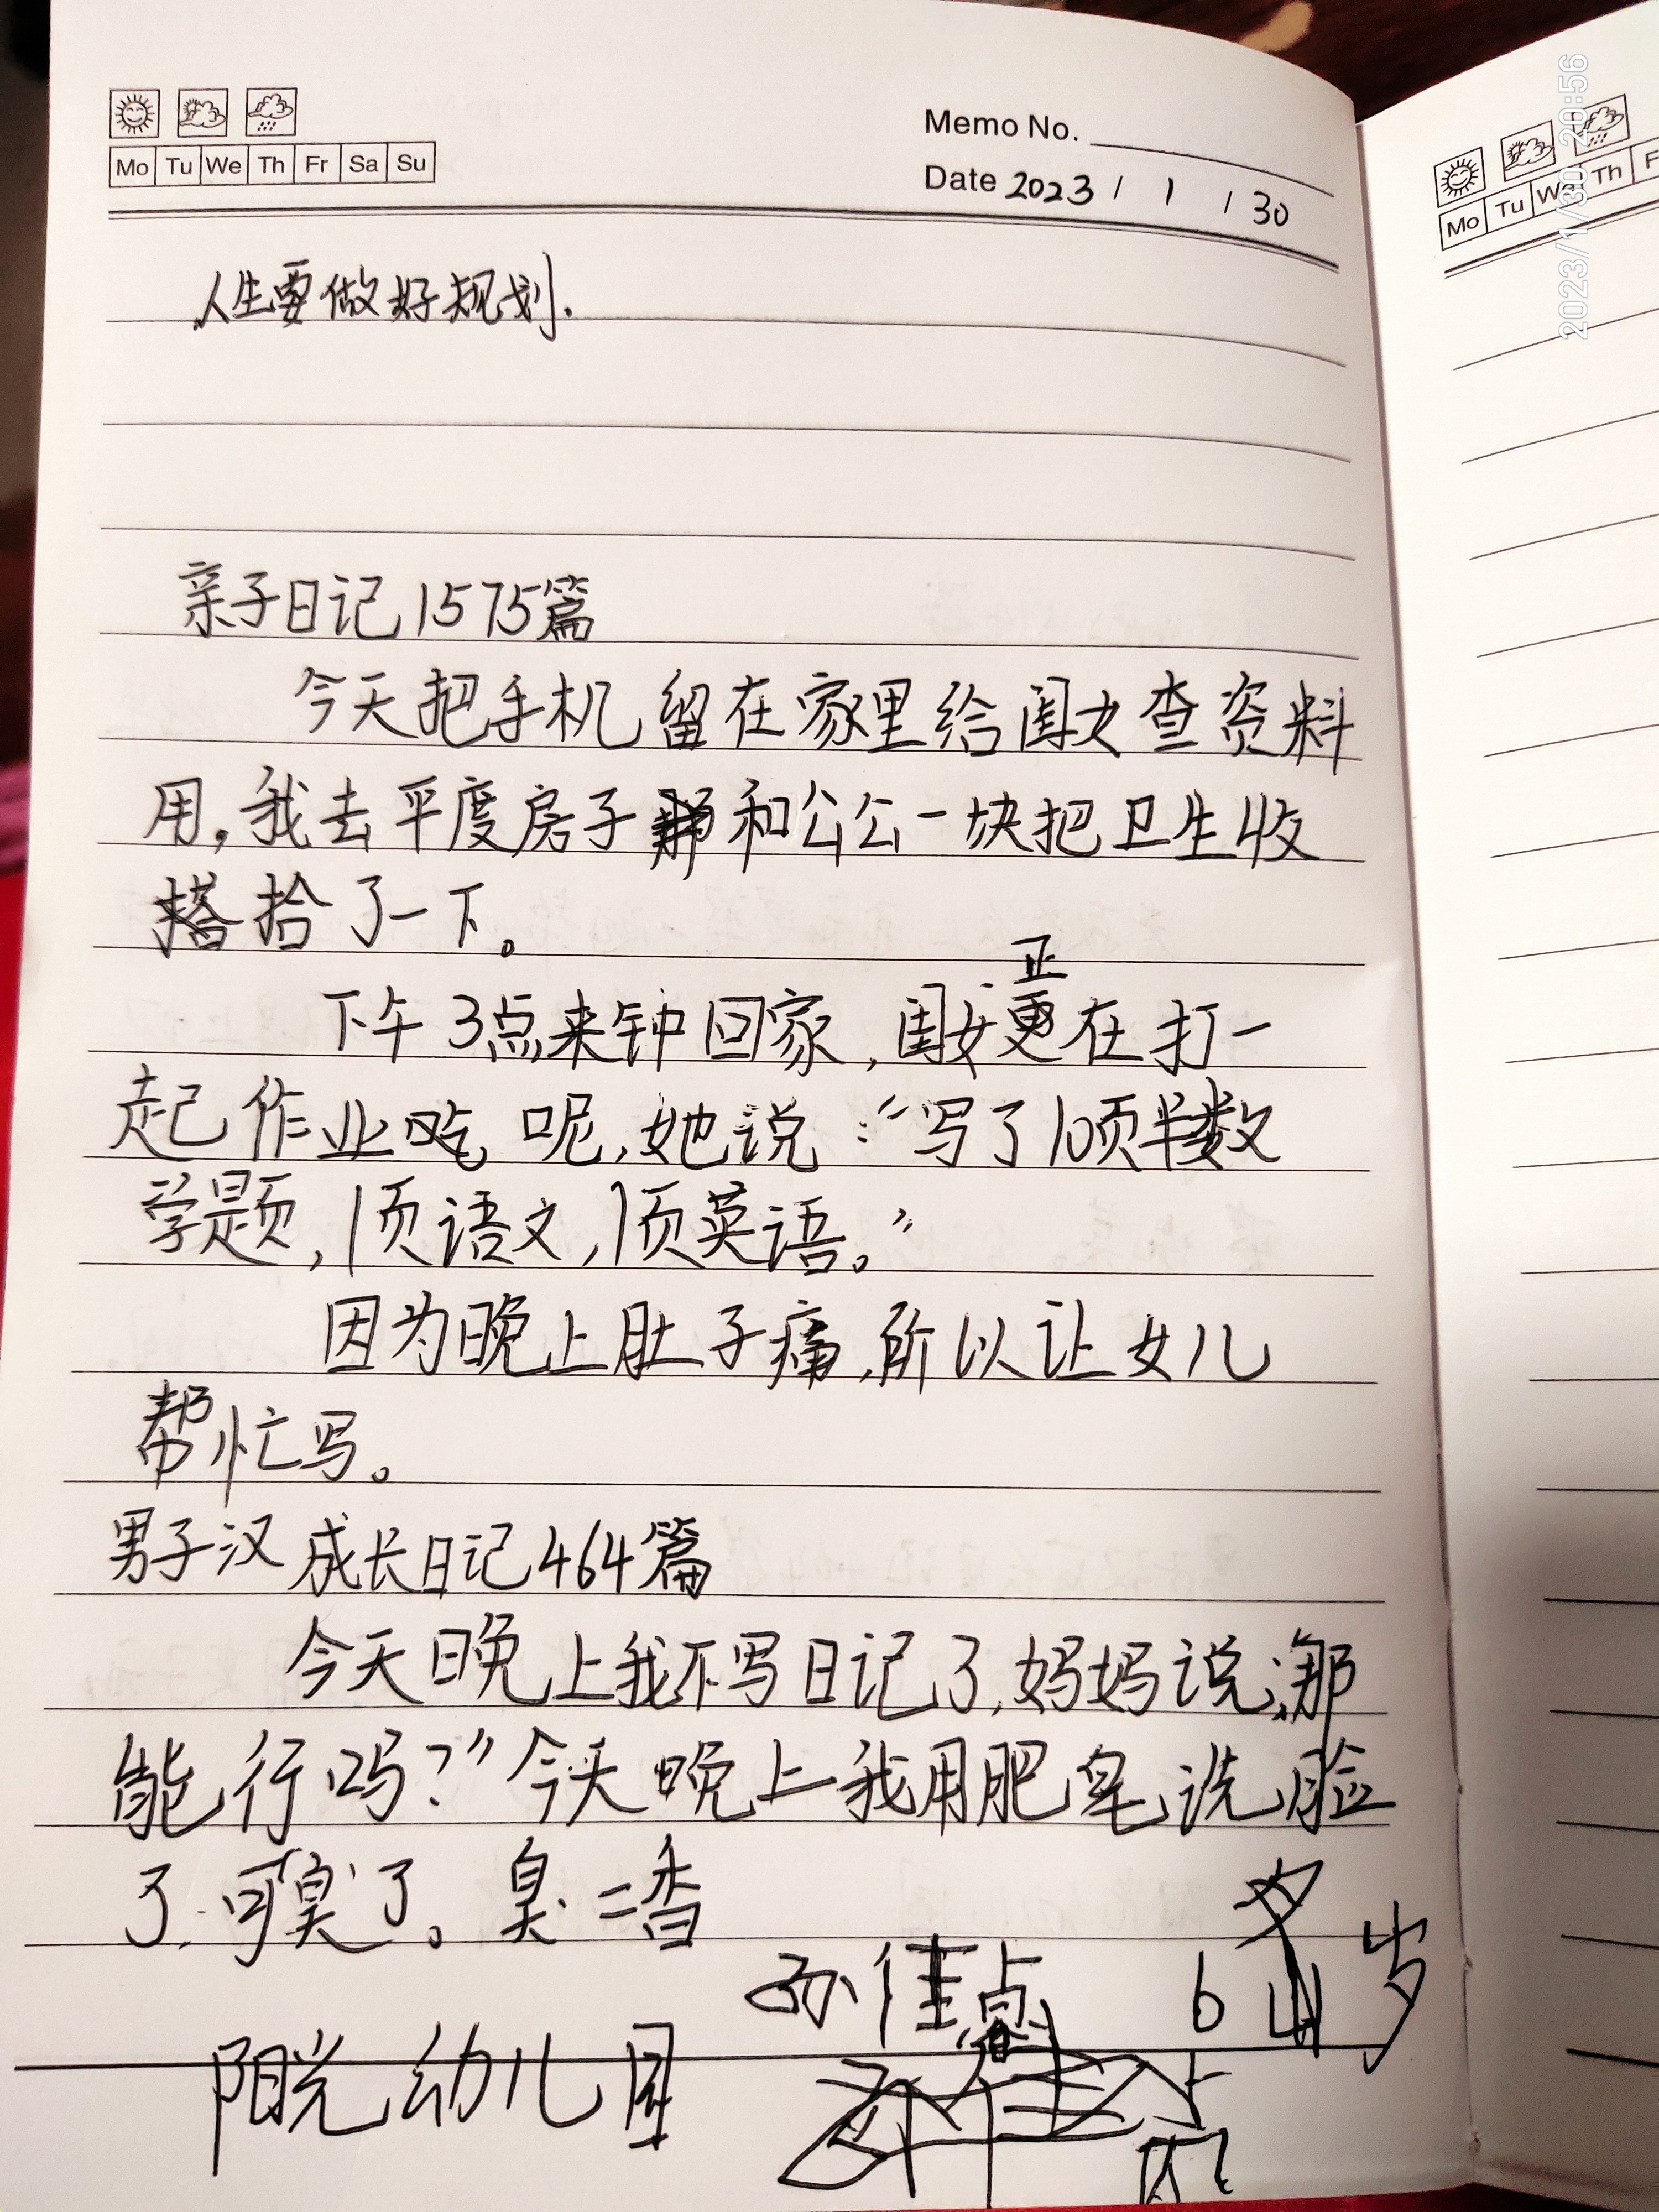 Mo Tu We Th Fr Sa Su
Memo No.
Date 2023 / 1 / 30
人生要做好规划.
亲子日记1575篇
今天把手机留在家里给闺女查资料
用,我去平度房子和公公一块把卫生收
拾了一下。
正
下午3点来钟回家,闺女在打一
起作业吃呢,她说:“写了10页半数
学题,1页语文,1页英语。”
因为晚上肚子痛,所以让女儿
帮忙写。
男子汉成长日记464篇
今天晚上我不写日记了,妈妈说:那
能行吗?”今天晚上我用肥皂洗脸
了.可臭了。臭=香
孙佳 6 岁
阳光幼儿园
Mo Tu We Th F
2023/1/30 20:56